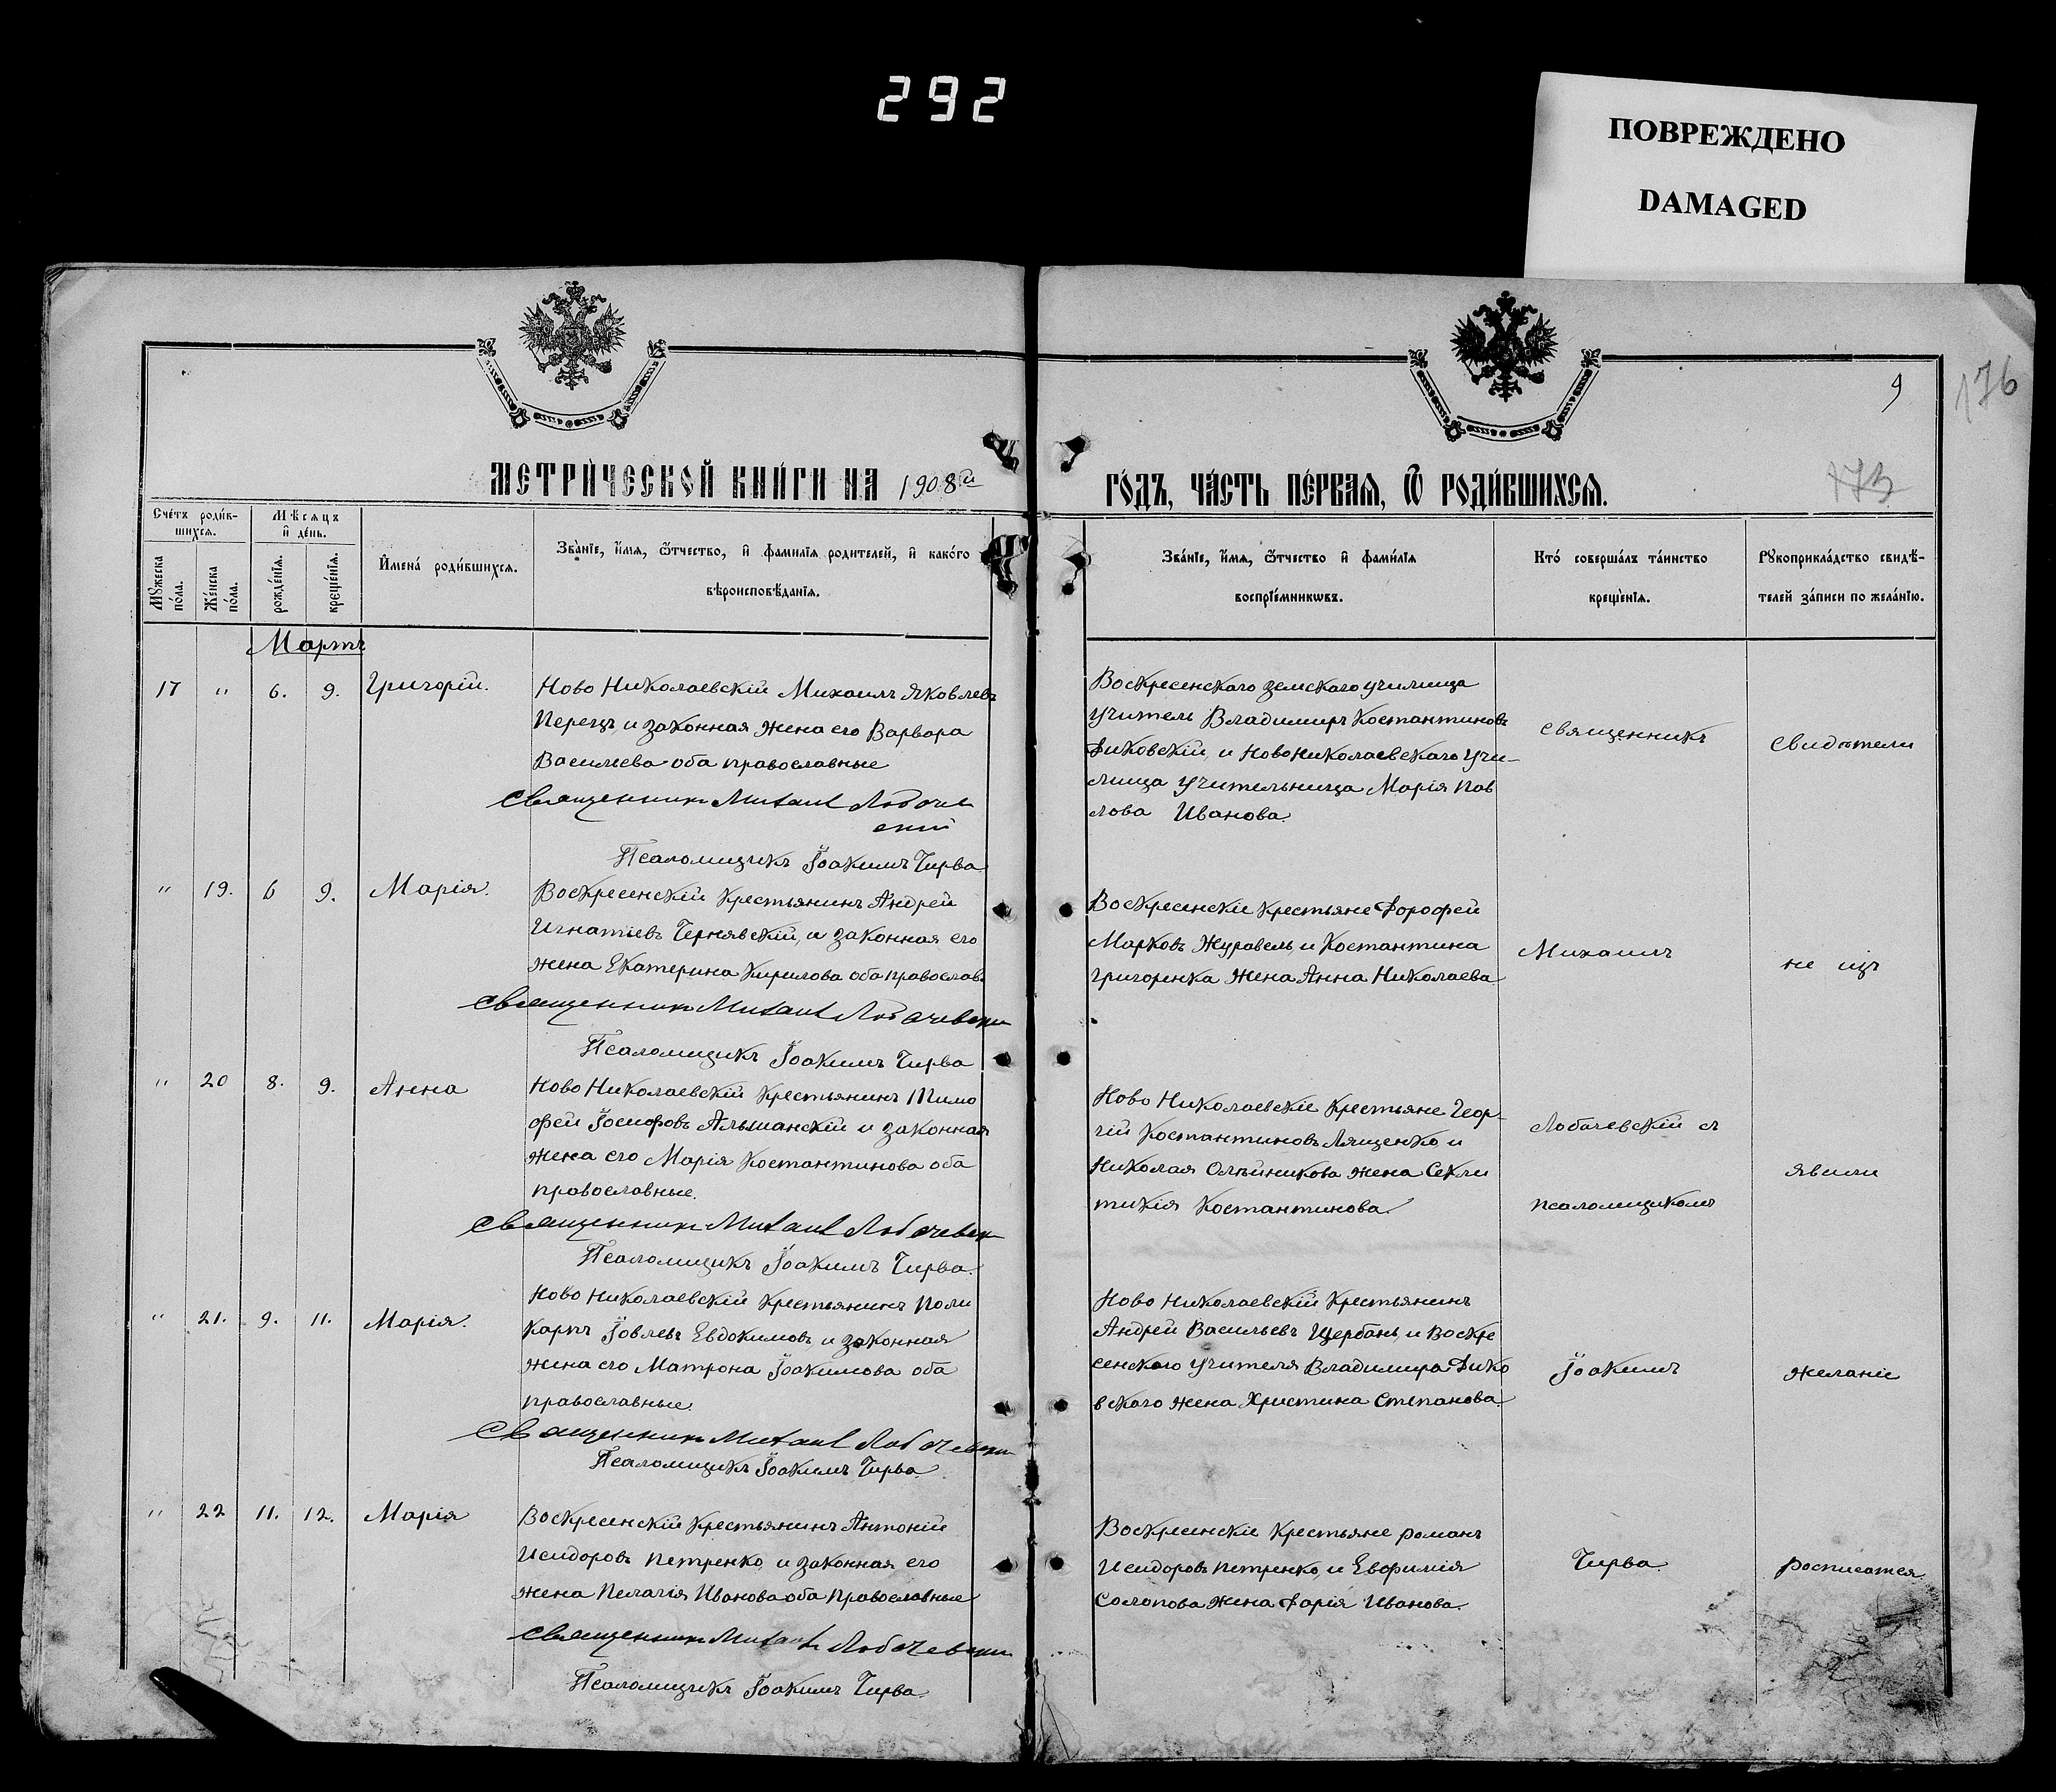 292
ПОВРЕЖДЕНО
DAMAGED
9
176
173
МЕТРИ́ЧЕСКОЙ КНИ́ГИ НА 1908й
ГО́ДЪ, ЧА́СТЬ ПЕ́РВАЯ, Ѡ РОДИ́ВШИХСЯ.
Сче́тъ роди́в-
шихся.
Мѣсяцъ
и̂ де́нь.
Мꙋжеска
по́ла.
Же́нска
по́ла.
рожде́нїя.
креще́нїя.
И̂мена́ роди́вшихся.
Зва́нїе, и̂мя, ѻтчество, и̂ фами́лїя роди́телей, и̂ како́го
вѣроисповѣ́данїя.
Зва́нїе, и̂мя, ѻтчество и̂ фами́лїя
воспрїе́мникѡвъ.
Кто́ соверша́лъ та́инство
креще́нїя.
Рꙋкоприкла́дство свидѣ́-
телей за́писи по жела́нїю.
Мартъ
17 " 6. 9. Григорій.
Ново Николаевскій Михаилъ Яковлевъ
Перецъ, и законная жена его Варвара
Васильева оба православные
Священникъ Михаил Лобачев
ский
Псаломщикъ Іоакимъ Чирва
Воскресенскаго земскаго училища
учитель Владимиръ Костантиновъ
Диковскій, и Ново Николаевскаго Учи-
лища учительница Марія Пав
лова Иванова.
Священникъ
Свидѣтели
" 19. 6 9. Марія.
Воскресенскій Крестьянинъ Андрей
Игнатіевъ Чернявскій, и законная его
жена Екатерина Кирилова оба православ.
Священникъ Михаил Лобачевски
Псаломщикъ Іоакимъ Чирва
Воскресенскіе Крестьяне Дорофей
Марковъ Журавель, и Костантина
Григоренка жена Анна Николаева
Михаилъ
не изъ
" 20 8. 9. Анна
Ново Николаевскій Крестьянинъ Тимо
фей Іосифовъ Альшанскій и законная
жена его Марія Костантинова оба
православные.
Священникъ Михаил Лобачевски
Псаломщикъ Іоакимъ Чирва.
Ново Николаевскіе Крестьяне Геор-
гій Костантиновъ Лященко и
Николая Олѣйникова жена Секли
тикія Костантинова.
Лобачевскій съ
псаломщикомъ
явили
" 21. 9. 11. Марія.
Ново Николаевскій Крестьянинъ Поли
карпъ Іовлевъ Евдокимовъ и законная
жена его Матрона Іоакимова оба
православные.
Священникъ Михаил Лобачевски
Псаломщикъ Іоакимъ Чирва.
Ново Николаевскій Крестьянинъ
Андрей Васильевъ Щербань, и Воскре
сенского учителя Владимира Дико
вского жена Христина Степанова.
Іоакимъ
желаніе
" 22 11. 12. Марія
Воскресенскій Крестьянинъ Антоній
Исидоровъ Петренко, и законная его
жена Пелагія Иванова оба Православные
Священникъ Михаил Лобачевски
Псаломщикъ Іоакимъ Чирва.
Воскресенскіе Крестьяне Романъ
Исидоровъ Петренко и Евфимія
Солопова жена Дарія Иванова.
Чирва
росписатся.